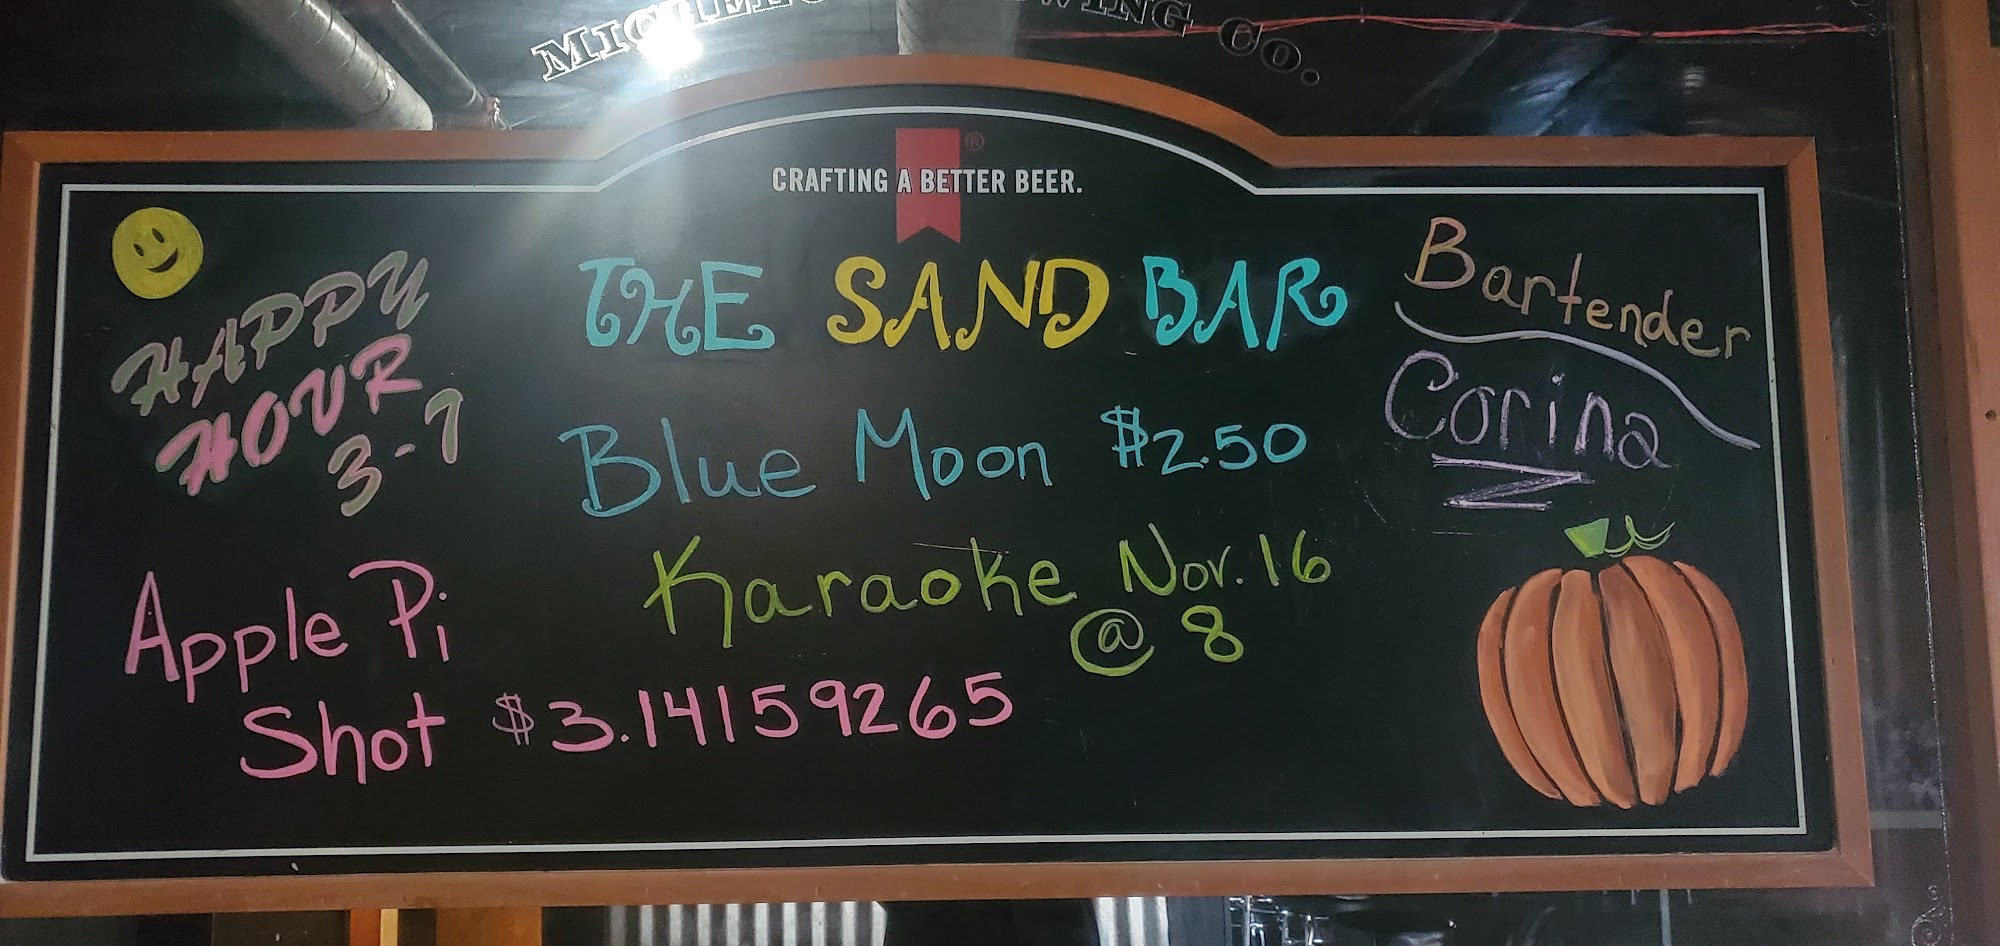 CO.
®
CRAFTING A BETTER BEER.
HAPPY
HOUR
3-7
THE SAND BAR
Blue Moon $2.50
Karaoke Nov. 16
@ 8
Bartender
Corina
Apple Pi
Shot $3.14159265